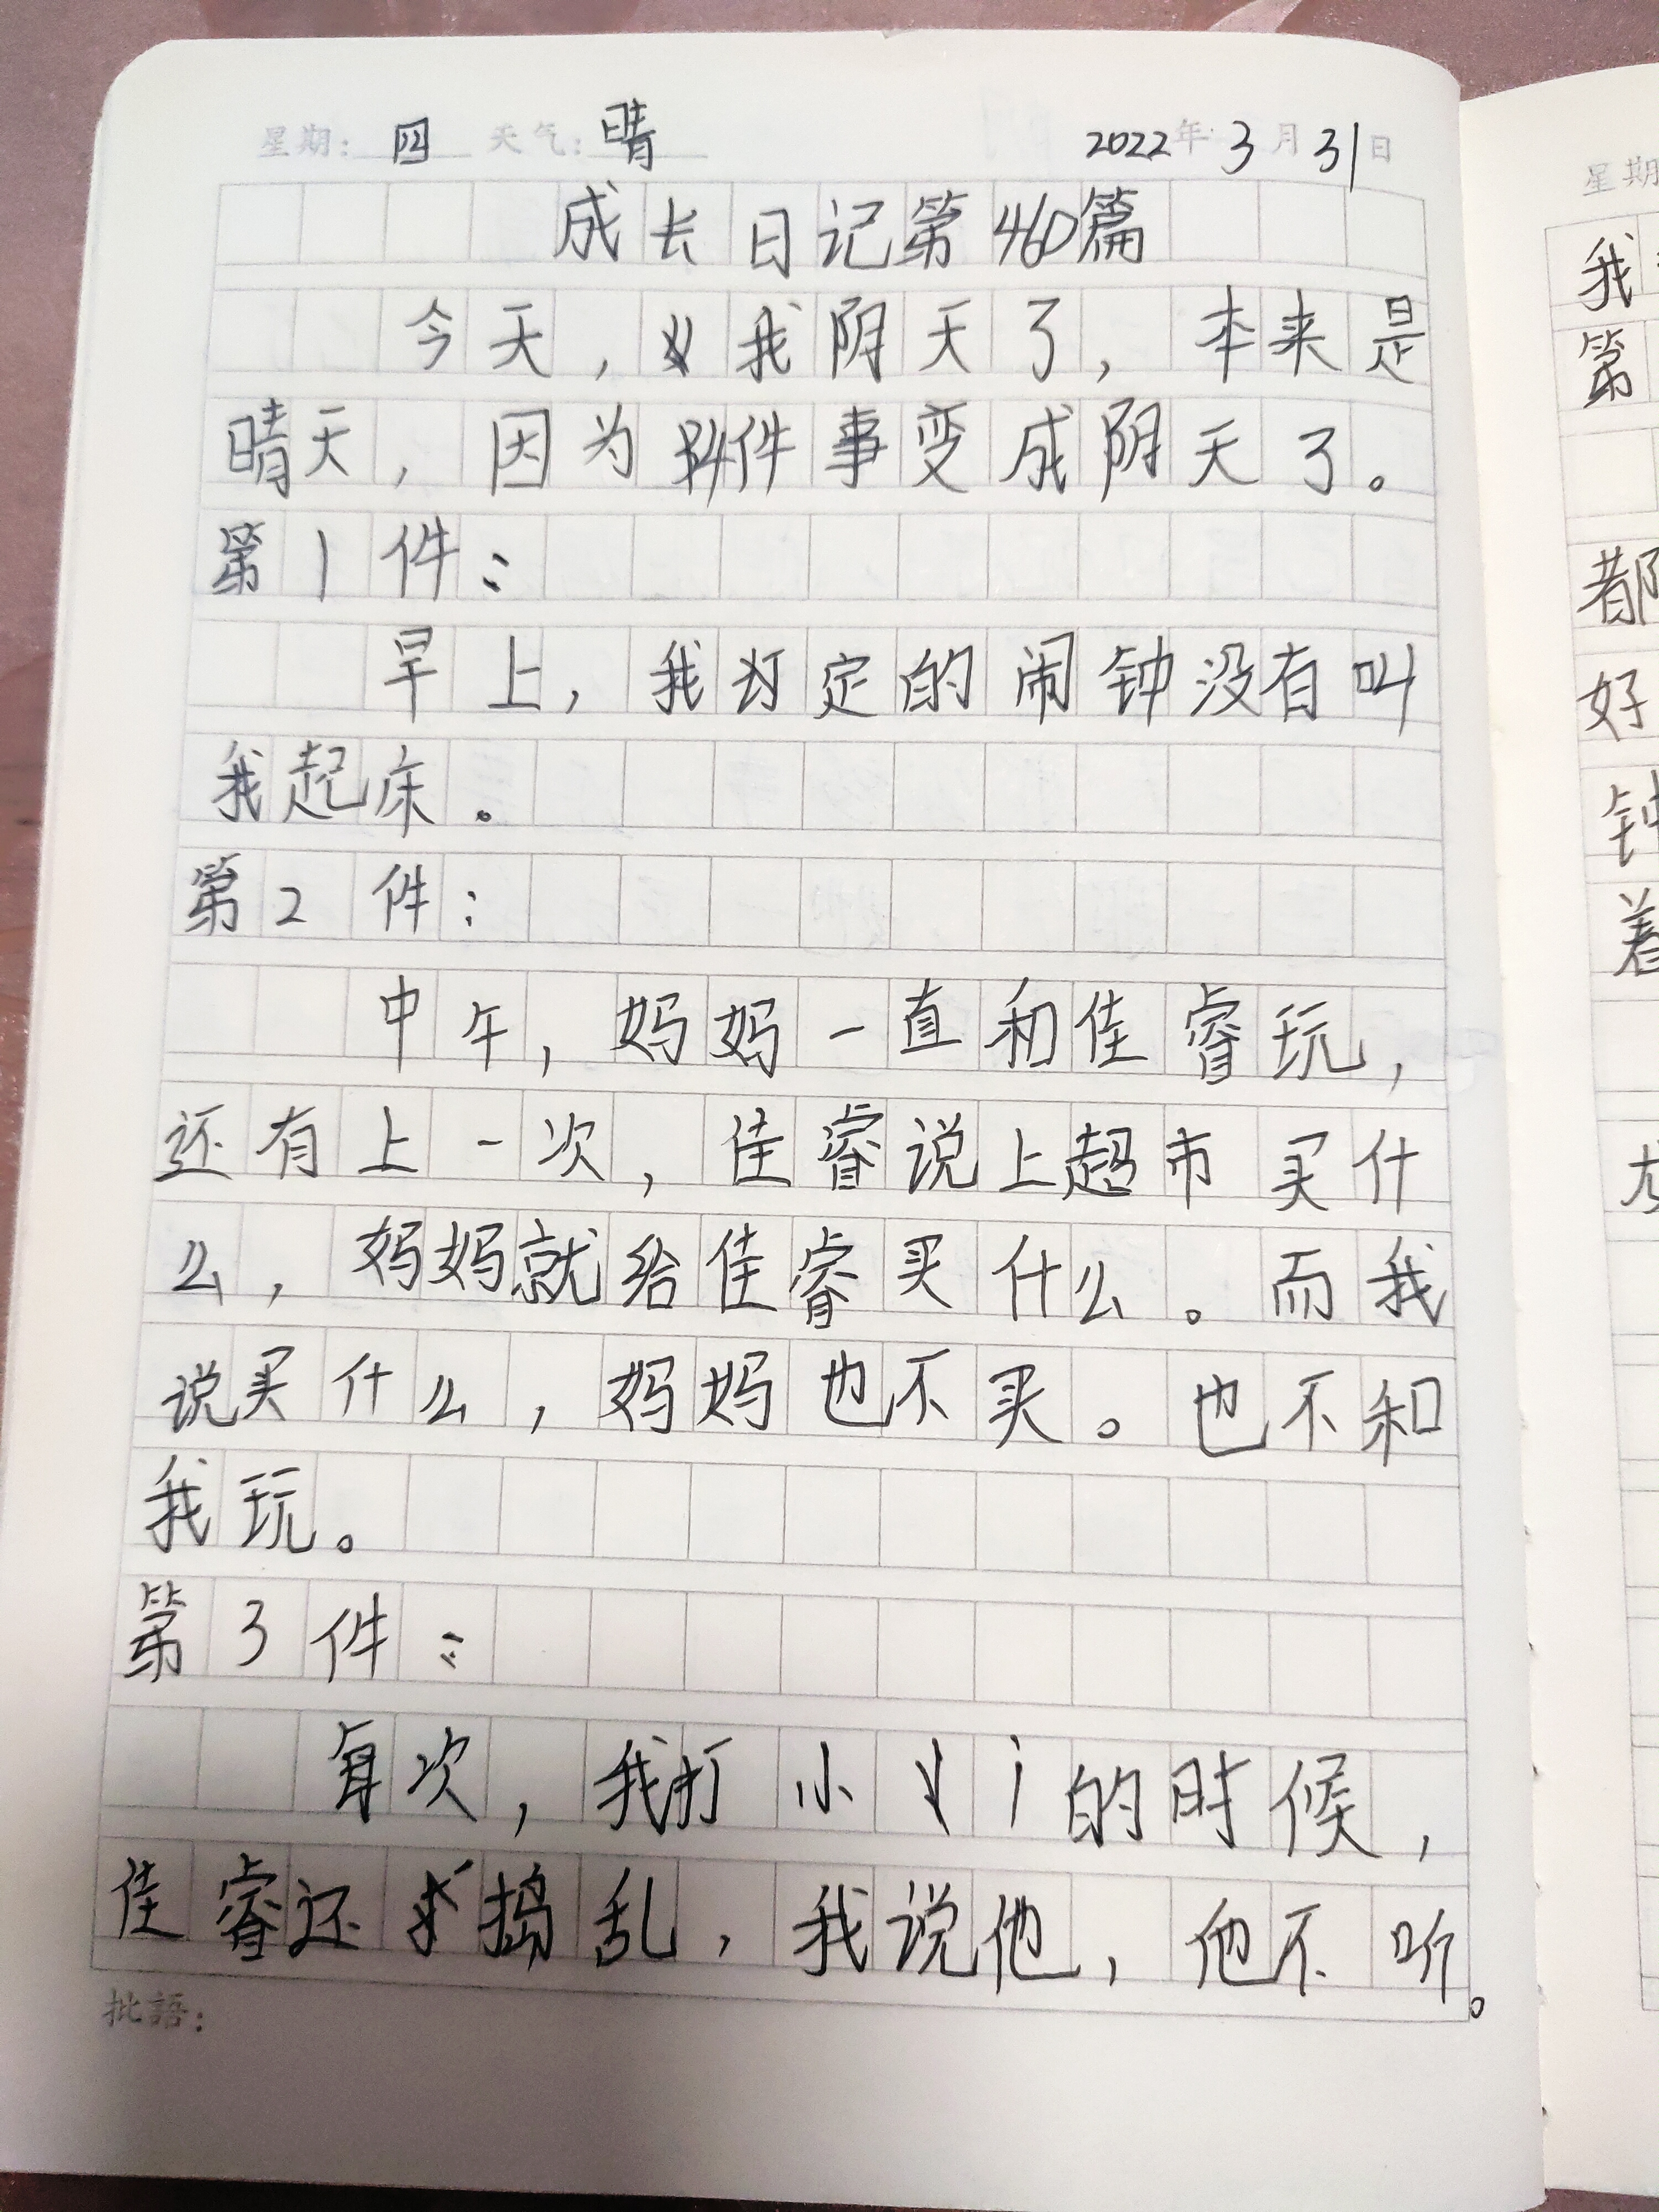 星期: 四 天气: 晴 2022年 3月31日
成长日记第460篇
今天,我阴天了,本来是
晴天,因为4件事变成阴天了。
第1件:
早上,我订定的闹钟没有叫
我起床。
第2件:
中午,妈妈一直和佳睿玩,
还有上一次,佳睿说上超市买什
么,妈妈就给佳睿买什么。而我
说买什么,妈妈也不买。也不和
我玩。
第3件:
每次,我打小的时候,
佳睿还捣乱,我说他,他不听。
批語:
星期
我
第
都
好
钟
着